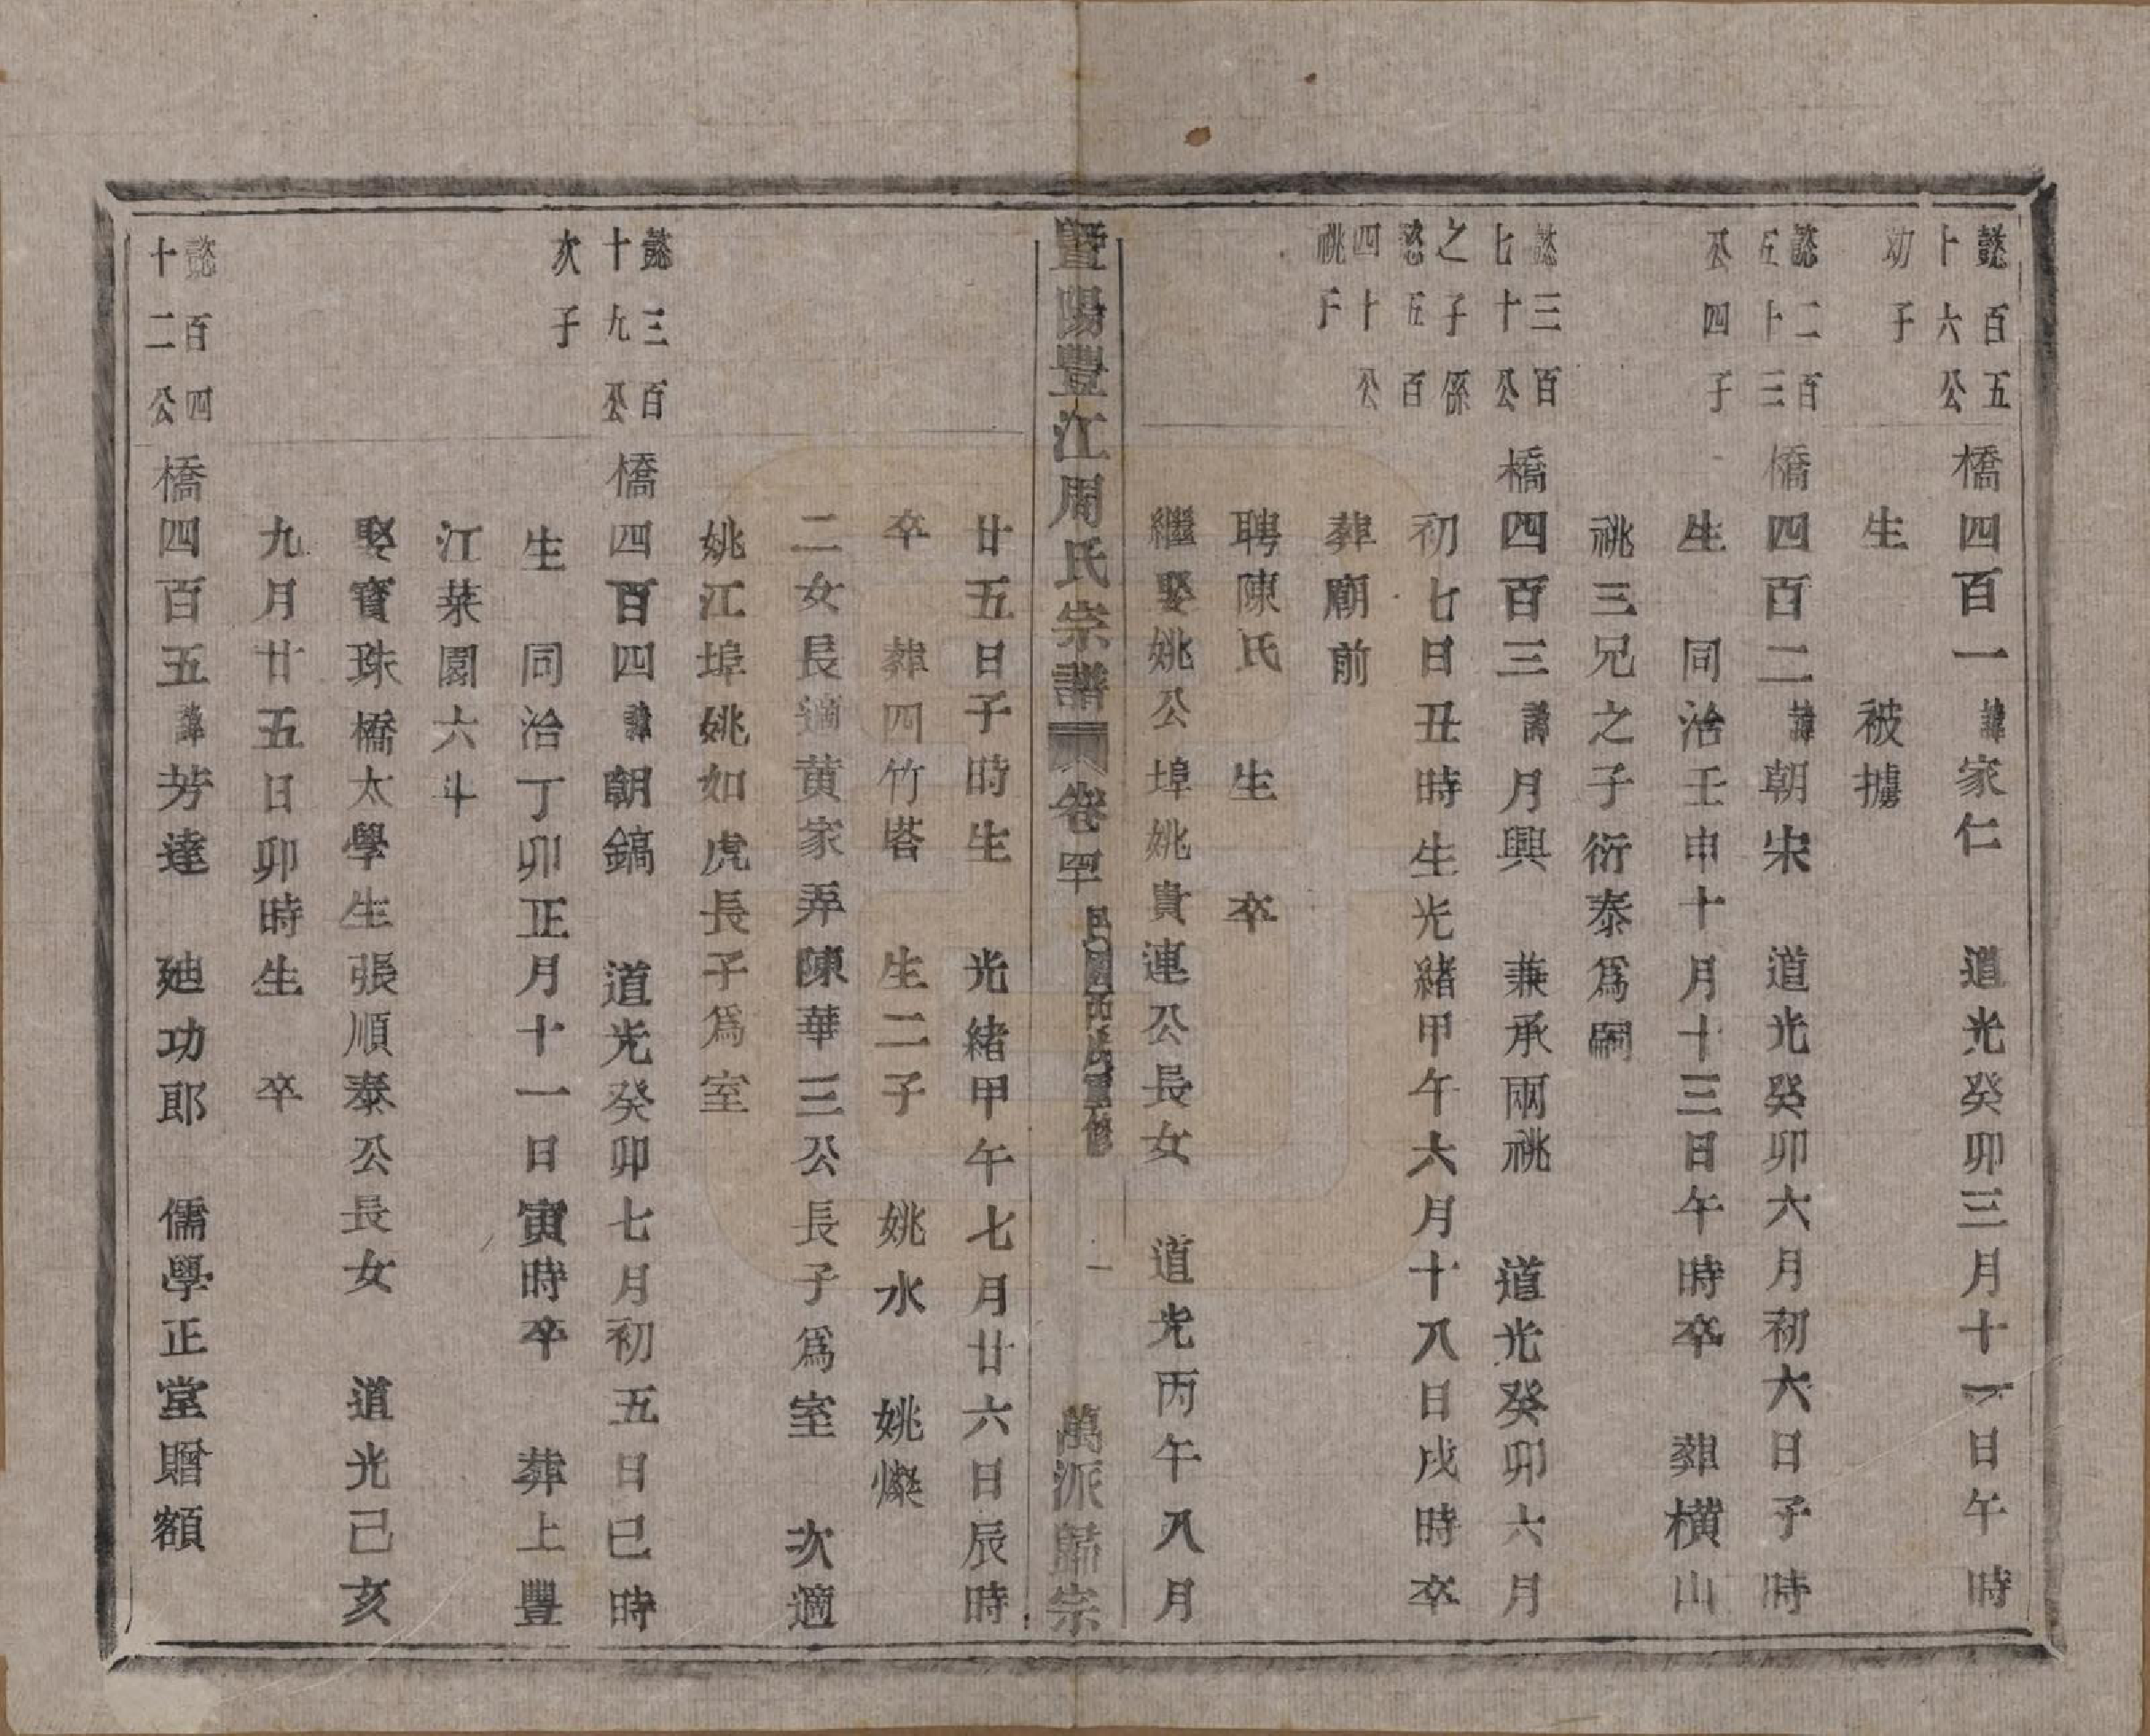 懿百五
十六公
幼子
橋四百一諱家仁 道光癸卯三月十一日午時
生 被擄
懿二百
五十三
公四子
橋四百二諱朝宋 道光癸卯六月初六日子時
生 同治壬申十月十三日午時卒 葬橫山
祧三兄之子衍泰爲嗣
懿三百
七十公
之子係
懿五百
四十公
祧子
橋四百三諱月興 兼承兩祧 道光癸卯六月
初七日丑時生光緒甲午六月十八日戌時卒
葬廟前
聘陳氏 生 卒
繼娶姚公埠姚貴連公長女 道光丙午八月
暨陽豐江周氏宗譜 卷四十 民國 重修 一 萬派歸宗
廿五日子時生 光緒甲午七月廿六日辰時
卒 葬四竹塔 生二子 姚水 姚燦
二女長適黃家弄陳華三公長子爲室 次適
姚江埠姚如虎長子爲室
懿三百
十九公
次子
橋四百四諱朝鎬 道光癸卯七月初五日巳時
生 同治丁卯正月十一日寅時卒 葬上豐
江菜園六斗
娶寶珠橋太學生張順泰公長女 道光己亥
九月廿五日卯時生 卒
懿百四
十二公
橋四百五諱芳達 廸功郎 儒學正堂贈額